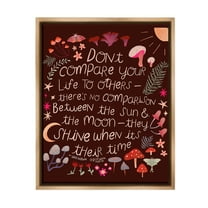 DON'T
COMPARE YOUR
LIFE TO OTHERS –
THERE'S NO COMPARISON
BETWEEN THE SUN &
THE MOON – THEY
SHINE WHEN ITS
THEIR TIME